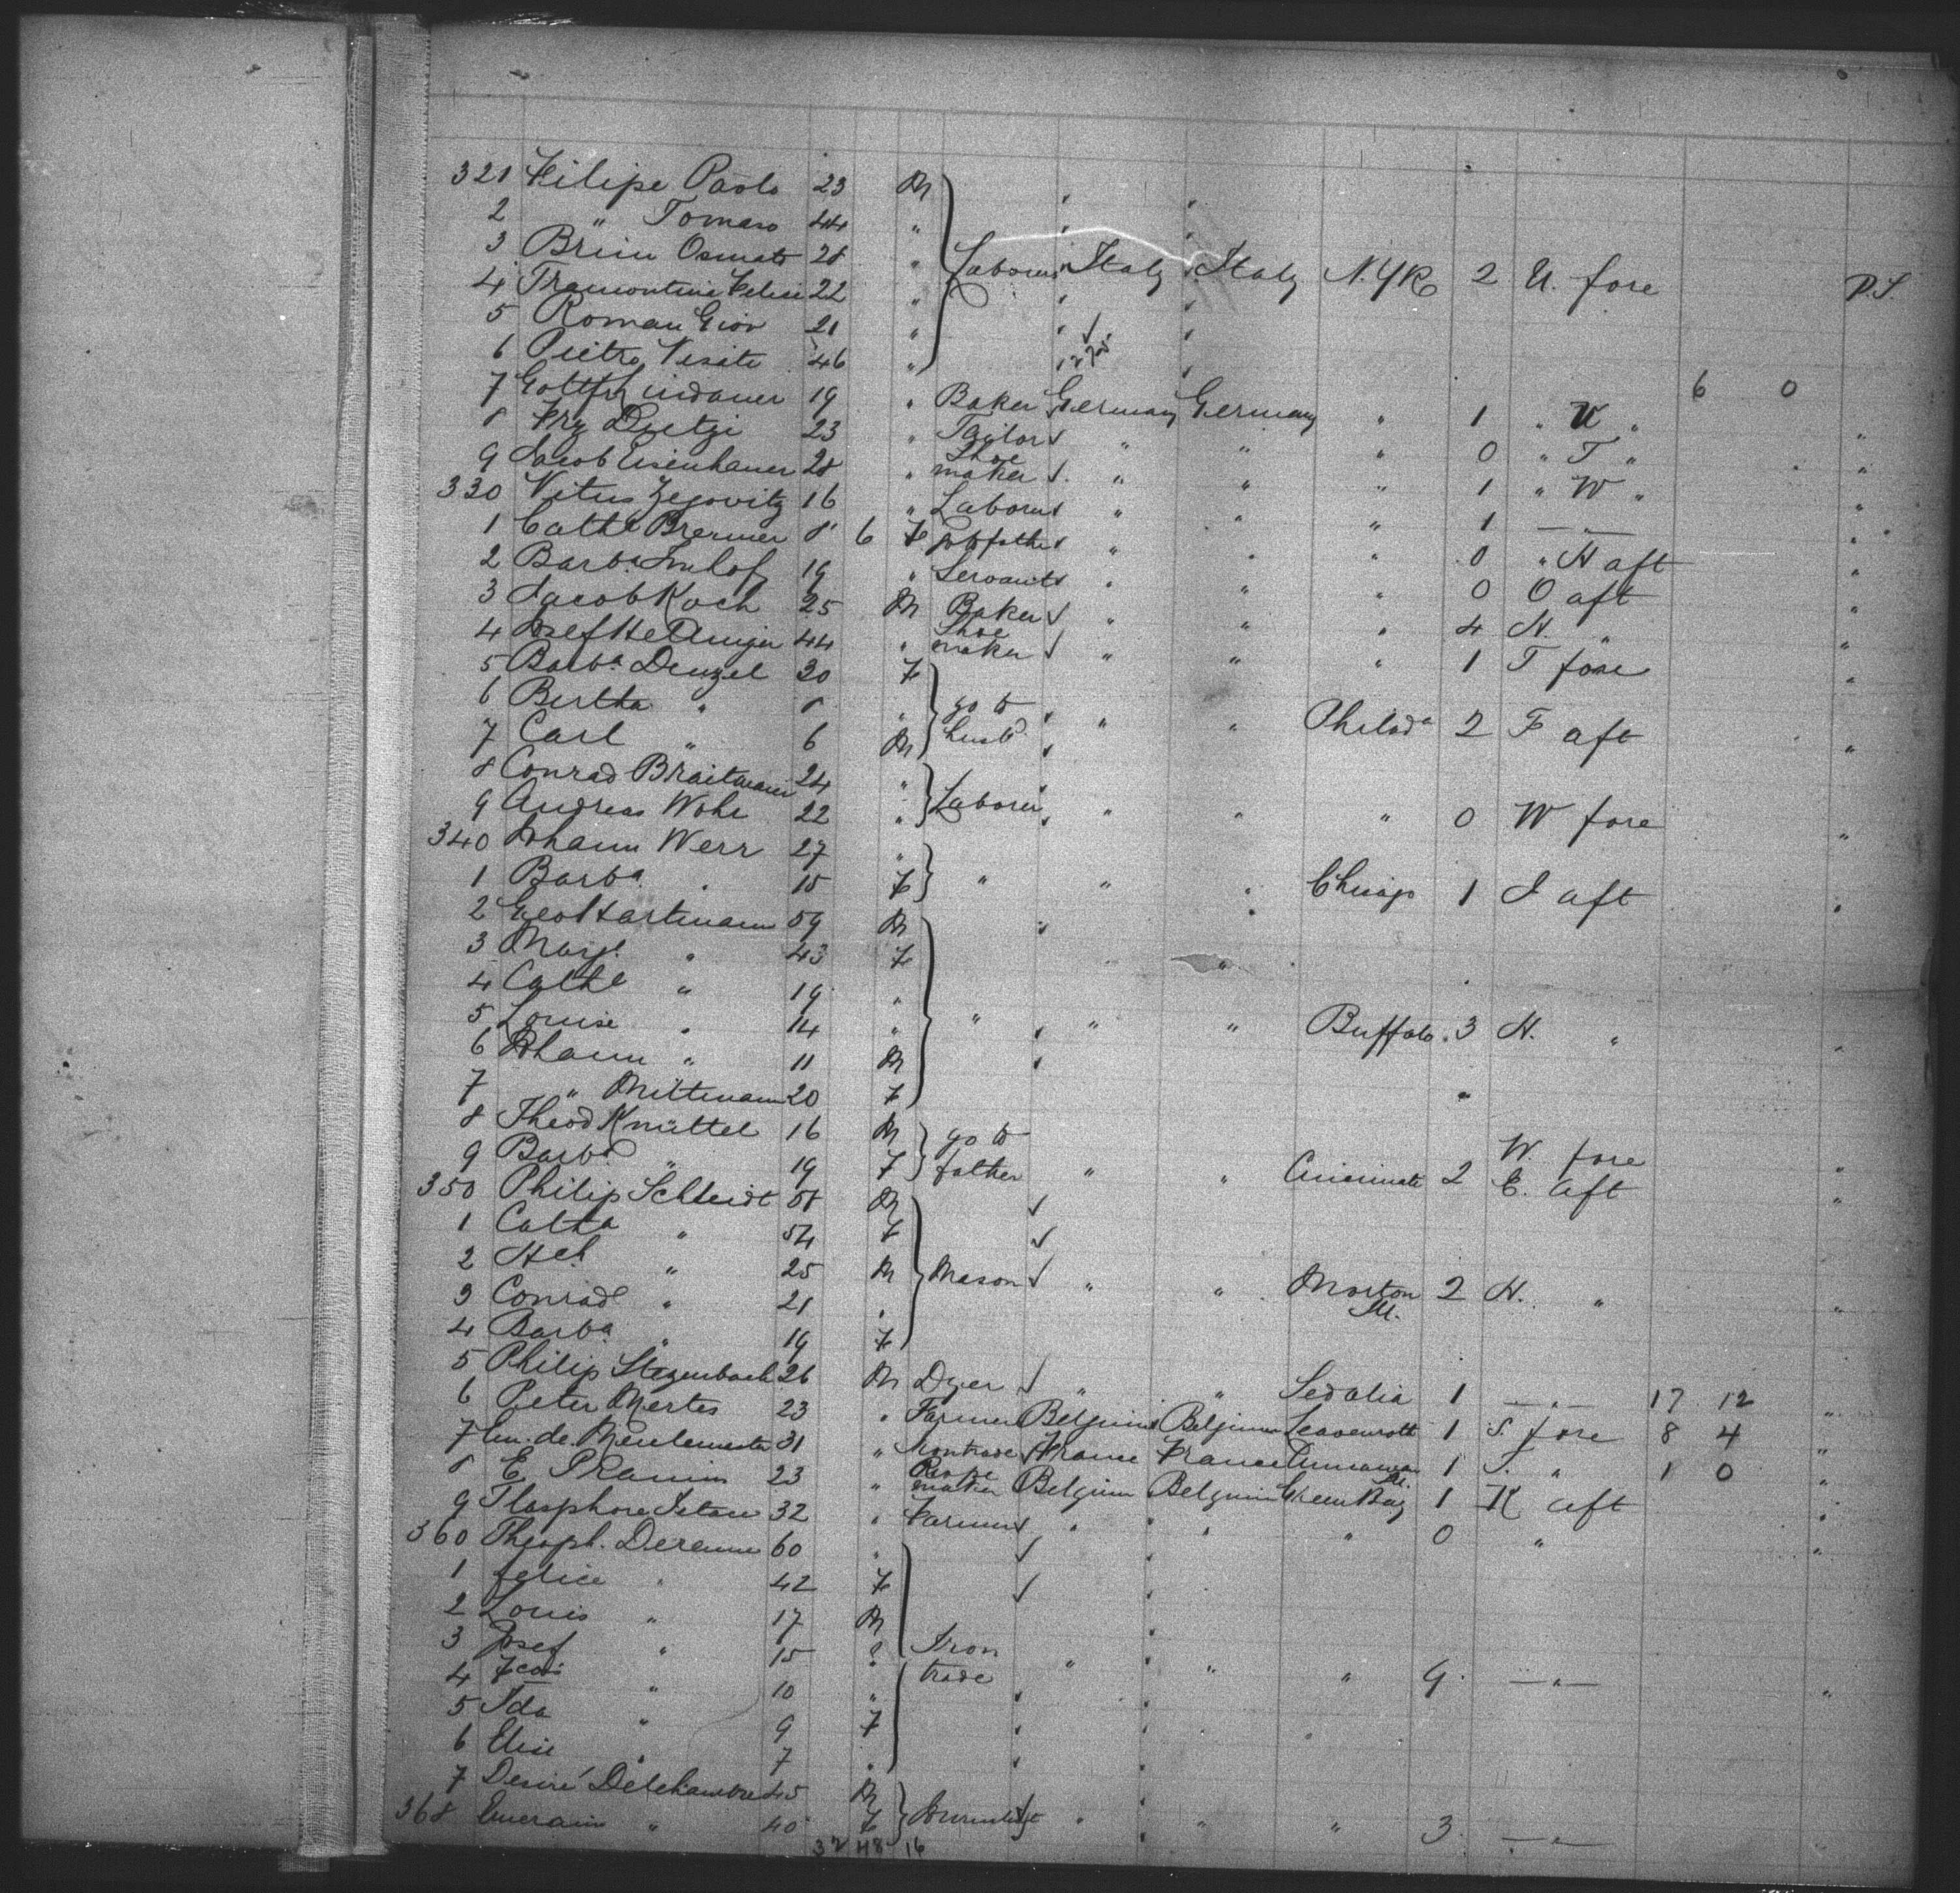 321 Filipe Paolo 23 M
2 " Tomaso 44 "
3 Brini Osmato 28 " Laborer Italy Italy N.Yk 2 U. fore P.S.
4 Tramontina Felice 22 "
5 Roman Giov 21 "
6 Pietro 46 "
6 0
7 Gottfr Lindauer 19 " Baker Germany Germany " 1 " U "
8 Frz 23 " Tailor " " " 0 " T "
9 Jacob Eisenhauer 28 " Shoe maker " " " 1 " W "
330 Vitus Zegovitz 16 " Laborer " " " 1 — " —
1 Cathe Bremer 8 6 F " " " 0 " H aft
2 Barba Imhof 19 " Servant " " " 0 O aft
3 Jacob Koch 25 M Baker " " " 4 H. "
4 Josef 44 " Shoe maker " " " 1 T fore
5 Barba Denzel 30 F
6 Bertha " 8 " go to husbd " " Philada 2 F aft "
7 Carl " 6 M
8 Conrad Braitmaier 24 "
9 Andreas Wohr 22 " Laborer " " " 0 W fore "
340 Johann Werr 27 "
1 Barba " 15 F " " " Chicago 1 I aft "
2 Geo Hartmann 59 M
3 Margt " 43 F
4 Cathe " 19 "
5 Louise " 14 " " " " Buffalo 3 H. "
6 Johann " 11 M
7 " Mittmann 20 F
8 Theod Knüttel 16 M go to W. fore
9 Barba " 19 F father " " Cincinnati 2 E. aft "
350 Philip Schleidt 58 M
1 Catha " 54 F
2 Hch " 25 M Mason " " Morton Ill. 2 H. " "
3 Conrad " 21 "
4 Barba " 19 F
5 Philip Stegenbach 26 M Dyer " " Sedalia 1 — " — 17 12
6 Peter Mertes 23 " Farmer Belgium Belgium Leavenworth 1 S. fore 8 4 "
7 de Meulemester 31 " Irontrade France France 1 S. " 1 0 "
8 E 23 " maker Belgium Belgium Green Bay 1 K aft "
9 32 " Farmer " " " 0 " "
360 Theoph. Derenne 60 "
1 Felice " 42 F
2 Louis " 17 M
3 Josef " 15 " Iron trade " " " 9 — " — "
4 " 10 "
5 Ida " 9 F
6 Elise " 7 "
7 Desiré Delchambre 45 M
368 " 40 F " " " 3 — " —
32 48 16